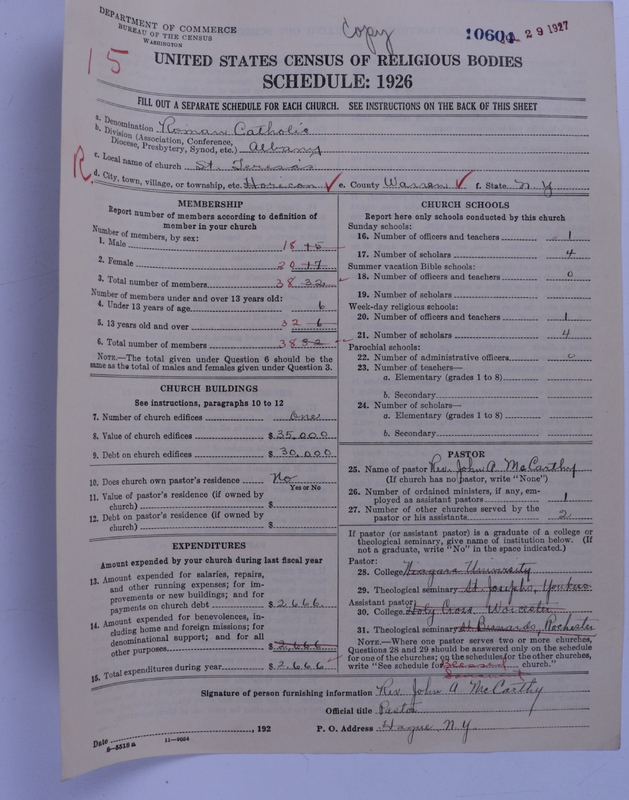 DEPARTMENT OF COMMERCE
BUREAU OF THE CENSUS
WASHINGTON
Copy
10604
29 1927
15
UNITED STATES CENSUS OF RELIGIOUS BODIES
SCHEDULE: 1926
FILL OUT A SEPARATE SCHEDULE FOR EACH CHURCH. SEE INSTRUCTIONS ON THE BACK OF THIS SHEET
a. Denomination Roman Catholic
b. Division (Association, Conference, Diocese, Presbytery, Synod, etc.) Albany
c. Local name of church St. Teresa's
R
d. City, town, village, or township, etc. Horicon e. County Warren f. State N. Y
MEMBERSHIP
Report number of members according to definition of member in your church
Number of members, by sex:
1. Male 18 15
2. Female 20 17
3. Total number of members 38 32
Number of members under and over 13 years old:
4. Under 13 years of age 6
5. 13 years old and over 32 6
6. Total number of members 38 32
NOTE.—The total given under Question 6 should be the same as the total of males and females given under Question 3.
CHURCH BUILDINGS
See instructions, paragraphs 10 to 12
7. Number of church edifices one
8. Value of church edifices $35,000
9. Debt on church edifices $30,000
10. Does church own pastor's residence No
Yes or No
11. Value of pastor's residence (if owned by church) $
12. Debt on pastor's residence (if owned by church) $
EXPENDITURES
Amount expended by your church during last fiscal year
13. Amount expended for salaries, repairs, and other running expenses; for improvements or new buildings; and for payments on church debt $2,666
14. Amount expended for benevolences, including home and foreign missions; for denominational support; and for all other purposes $2,666
15. Total expenditures during year $2,666
CHURCH SCHOOLS
Report here only schools conducted by this church
Sunday schools:
16. Number of officers and teachers 1
17. Number of scholars 4
Summer vacation Bible schools:
18. Number of officers and teachers 0
19. Number of scholars
Week-day religious schools:
20. Number of officers and teachers 1
21. Number of scholars 4
Parochial schools:
22. Number of administrative officers 0
23. Number of teachers—
a. Elementary (grades 1 to 8)
b. Secondary
24. Number of scholars—
a. Elementary (grades 1 to 8)
b. Secondary
PASTOR
25. Name of pastor Rev. John A. McCarthy
(If church has no pastor, write "None")
26. Number of ordained ministers, if any, employed as assistant pastors 1
27. Number of other churches served by the pastor or his assistants 2
If pastor (or assistant pastor) is a graduate of a college or theological seminary, give name of institution below. (If not a graduate, write "No" in the space indicated.)
Pastor:
28. College Niagara University
29. Theological seminary St Josephs, Yonkers
Assistant pastor:
30. College Holy Cross, Worcester
31. Theological seminary St Bernards, Rochester
NOTE.—Where one pastor serves two or more churches, Questions 28 and 29 should be answered only on the schedule for one of the churches; on the schedules for the other churches, write "See schedule for Blessed Sacrament church."
Signature of person furnishing information Rev. John A McCarthy
Official title Pastor
Date , 192 P. O. Address Hague N. Y
8-5518a 11-9054